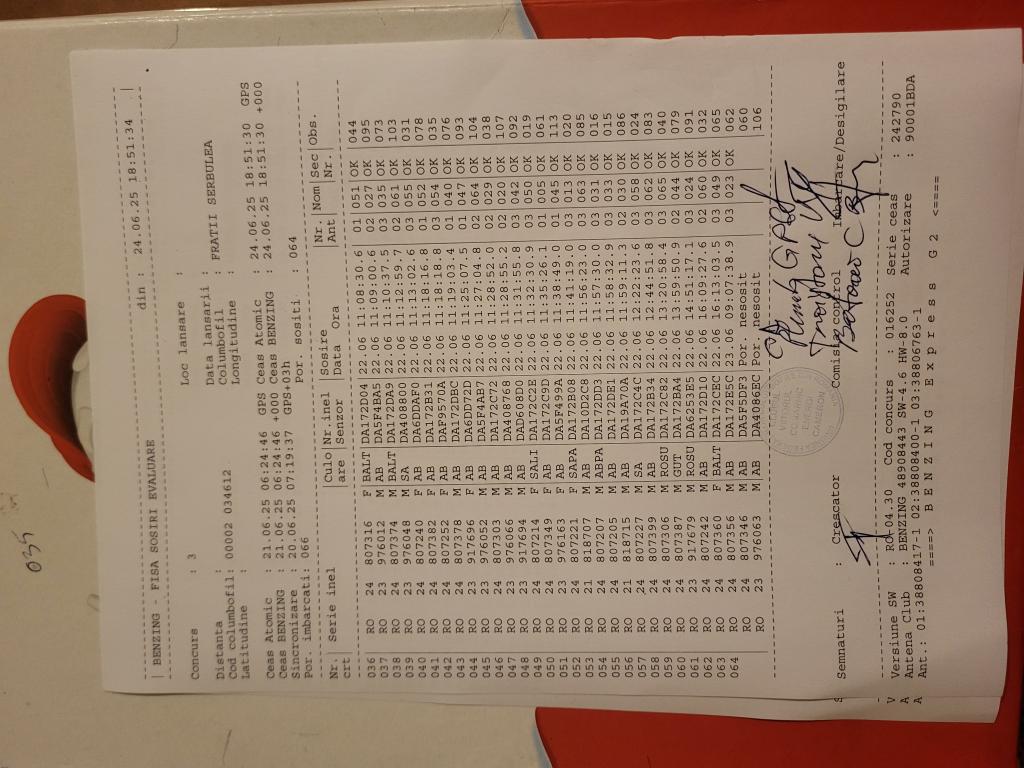 | BENZING - FISA SOSIRI EVALUARE din : 24.06.25 18:51:34 |
Concurs : 3 Loc lansare :
Distanta : Data lansarii :
Cod columbofil: 00002 034612 Columbofil : FRATII SERBULEA
Latitudine : Longitudine :
Ceas Atomic : 21.06.25 06:24:46 GPS Ceas Atomic : 24.06.25 18:51:30 GPS
Ceas BENZING : 21.06.25 06:24:46 +000 Ceas BENZING : 24.06.25 18:51:30 +000
Sincronizare : 20.06.25 07:19:37 GPS+03h
Por. imbarcati: 066 Por. sositi : 064
Nr. | Serie inel |Culo|Nr.inel |Sosire |Nr. |Nom|Sec|Obs.
crt |are |Senzor |Data Ora |Ant |Nr.|
036 RO 24 807316 F BALT DA172D04 22.06 11:08:30.6 01 051 OK 044
037 RO 23 976012 M AB DA5F4BA5 22.06 11:09:00.6 02 027 OK 095
038 RO 24 807374 M BALT DA172DA9 22.06 11:10:37.5 03 035 OK 073
039 RO 23 976048 M SA DA408800 22.06 11:12:59.7 02 061 OK 103
040 RO 24 807240 F AB DA6DDAF0 22.06 11:13:02.6 03 065 OK 031
041 RO 24 807382 F AB DA172B31 22.06 11:18:16.8 01 052 OK 078
042 RO 24 807252 F AB DAF9570A 22.06 11:18:18.8 03 054 OK 035
043 RO 24 807378 M AB DA172DBC 22.06 11:19:03.4 01 040 OK 076
044 RO 23 917696 F AB DA6DD72D 22.06 11:25:07.5 01 047 OK 093
045 RO 23 976052 M AB DA5F4AB7 22.06 11:27:04.8 02 064 OK 104
046 RO 24 807303 M AB DA172C72 22.06 11:28:52.0 02 029 OK 038
047 RO 23 976066 M AB DA408768 22.06 11:28:55.2 02 020 OK 107
048 RO 23 917694 M AB DAD608D0 22.06 11:31:55.8 02 042 OK 092
049 RO 24 807214 F SALI DA172C2E 22.06 11:32:30.9 03 050 OK 019
050 RO 24 807349 F AB DA172C9D 22.06 11:35:26.1 01 005 OK 061
051 RO 23 976163 F AB DA5F499A 22.06 11:38:49.0 01 045 OK 113
052 RO 24 807221 F SAPA DA172B08 22.06 11:41:19.0 03 013 OK 020
053 RO 21 818707 M AB DA10D2C8 22.06 11:56:23.0 03 063 OK 085
054 RO 24 807207 M ABPA DA172DD3 22.06 11:57:30.0 03 031 OK 016
055 RO 24 807205 M AB DA172DE1 22.06 11:58:32.9 03 033 OK 015
056 RO 21 818715 M AB DA19A70A 22.06 11:59:11.3 02 030 OK 086
057 RO 24 807227 M SA DA172C4C 22.06 12:22:23.6 03 058 OK 024
058 RO 24 807399 M AB DA172B34 22.06 12:44:51.8 03 062 OK 083
059 RO 24 807306 M ROSU DA172C82 22.06 13:20:58.4 03 065 OK 040
060 RO 24 807387 M GUT DA172BA4 22.06 13:59:50.9 02 044 OK 079
061 RO 23 917679 M ROSU DA6253E5 22.06 14:51:17.1 03 024 OK 091
062 RO 24 807242 M AB DA172D10 22.06 16:09:27.6 02 060 OK 032
063 RO 24 807360 F BALT DA172CEC 22.06 16:13:03.5 03 049 OK 065
064 RO 24 807356 M AB DA172E5C 23.06 09:07:38.9 03 023 OK 062
RO 24 807346 M AB DA5F5DF3 Por. nesosit 060
RO 23 976063 M AB DA4086EC Por. nesosit 106
Semnaturi : Crescator Comisia control Imbarcare/Desigilare
Versiune SW : RO-04.30 Cod concurs : 016252 Serie ceas : 242790
Antena Club : BENZING 48908443 SW-4.6 HW-8.0 Autorizare : 90001BDA
Ant.: 01:38808417-1 02:38808400-1 03:38806763-1
====> B E N Z I N G E x p r e s s G 2 <====
035